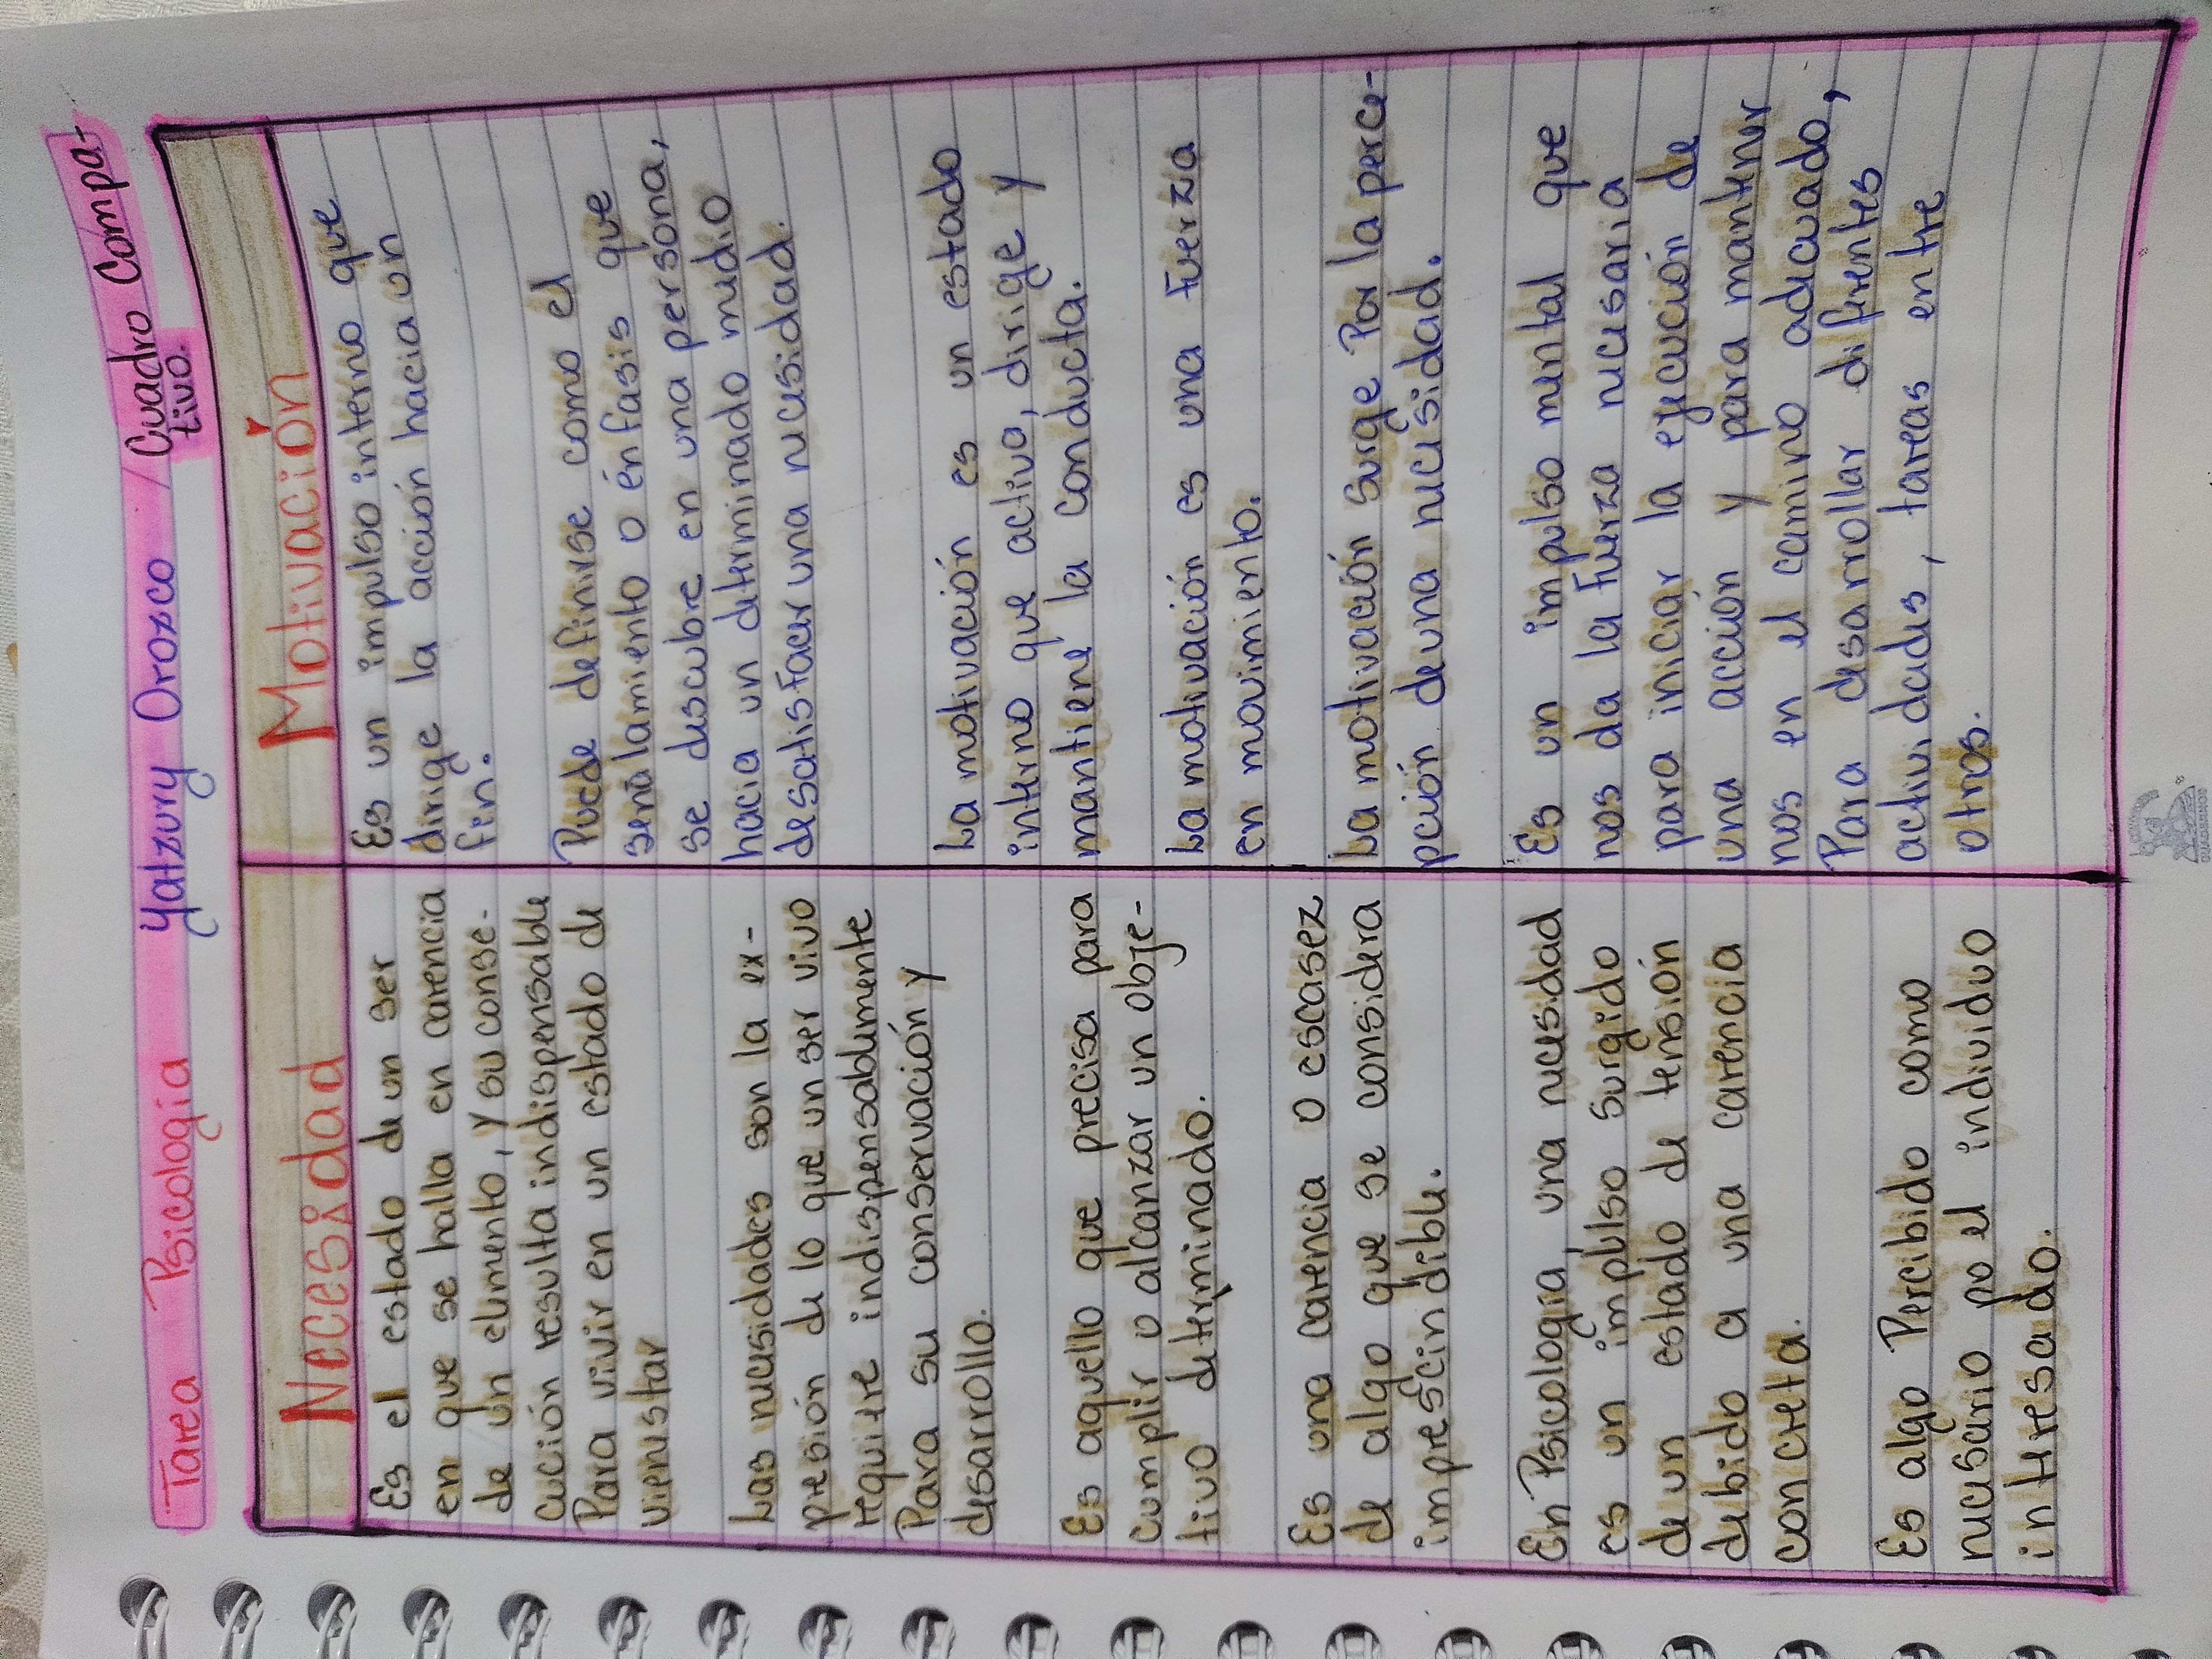 Tarea Psicología Yatzury Orozco / Cuadro Compa-
tivo.
Necesidad
Es el estado de un ser
en que se halla en carencia
de un elemento, y su conse-
cución resulta indispensable
Para vivir en un estado de
vienestar
Las necesidades son la ex-
presión de lo que un ser vivo
requiere indispensablemente
Para su conservación y
desarrollo.
Es aquello que precisa para
cumplir o alcanzar un obje-
tivo determinado.
Es una carencia o escasez
de algo que se considera
imprescindible.
En Psicología, una necesidad
es un impulso surgido
de un estado de tensión
debido a una carencia
concreta.
Es algo Percibido como
necesario po el individuo
interesado.
Motivación
Es un impulso interno que
dirige la acción hacia un
fin.
Puede definirse como el
señalamiento o énfasis que
se descubre en una persona,
hacia un determinado medio
de satisfacer una necesidad.
La motivación es un estado
interno que activa, dirige y
mantiene la conducta.
La motivación es una fuerza
en movimiento.
La motivación surge Por la perce-
pción de una necesidad.
Es un impulso mental que
nos da la fuerza necesaria
para iniciar la ejecución de
una acción y para mantener
nos en el camino adecuado,
Para desarrollar diferentes
actividades, tareas entre
otros.